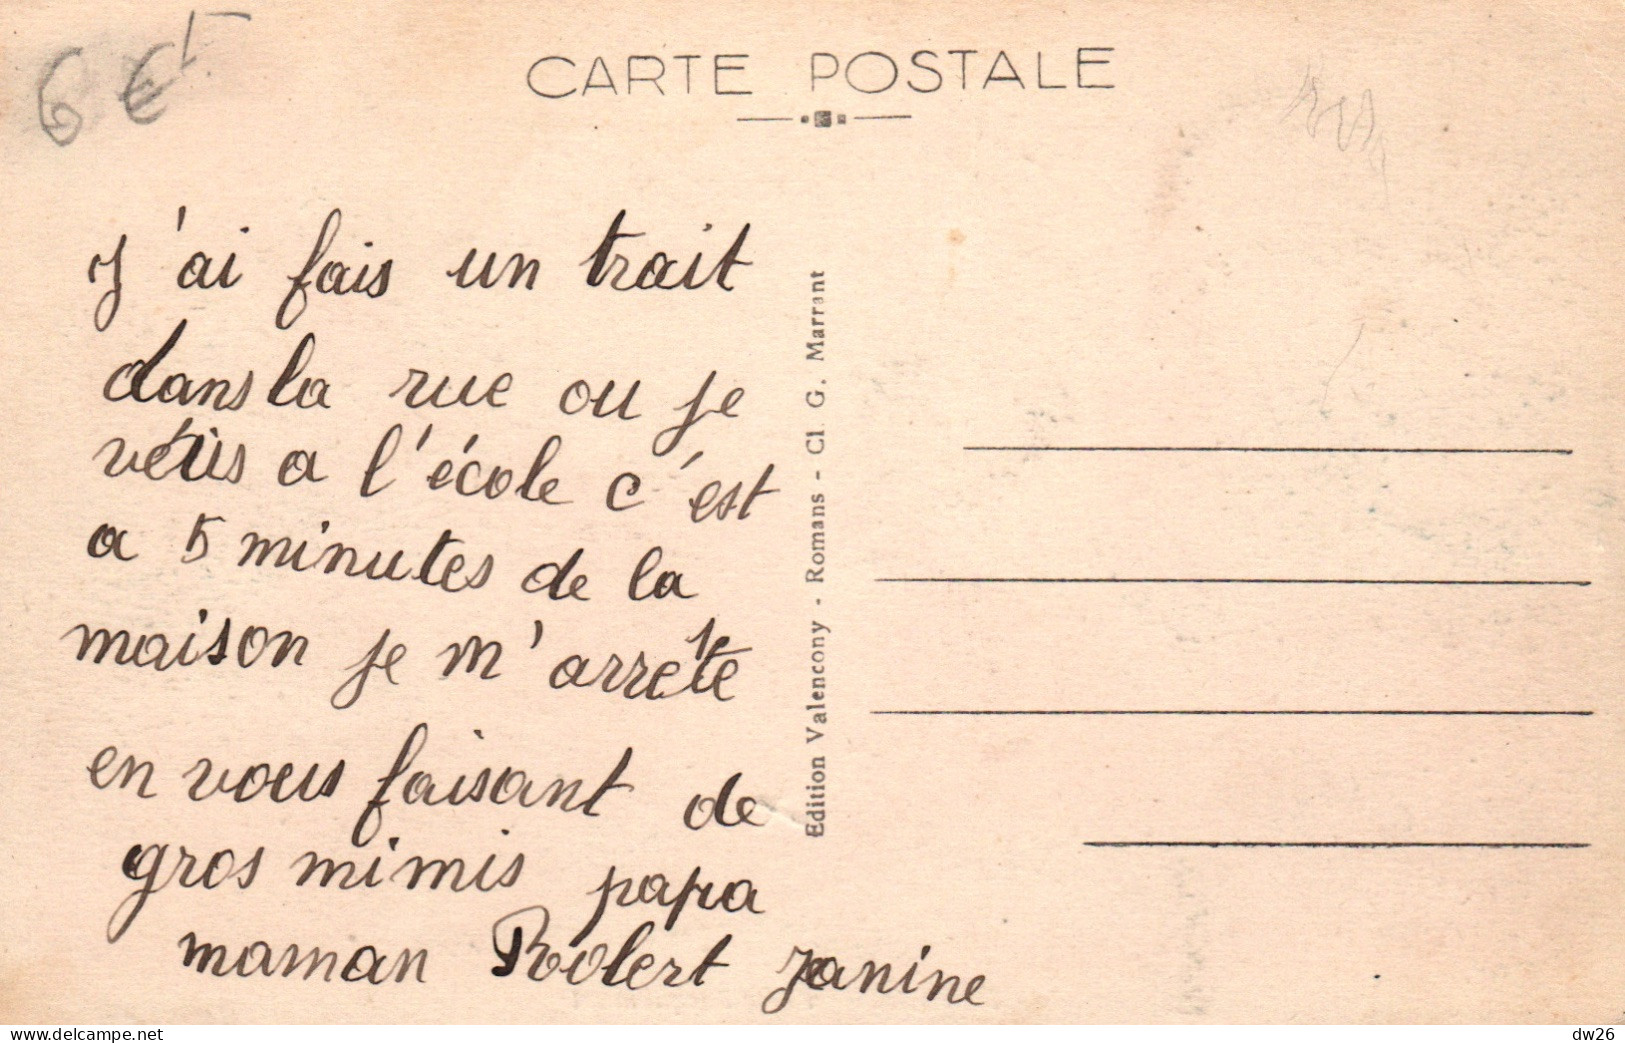 6 €
CARTE POSTALE
J'ai fais un trait
dans la rue ou je
vétis a l'école c'est
a 5 minutes de la
maison je m'arrête
en vous faisant de
gros mimis papa
maman Robert Janine
Edition Valencony - Romans - Cl. G. Marrant
dw26